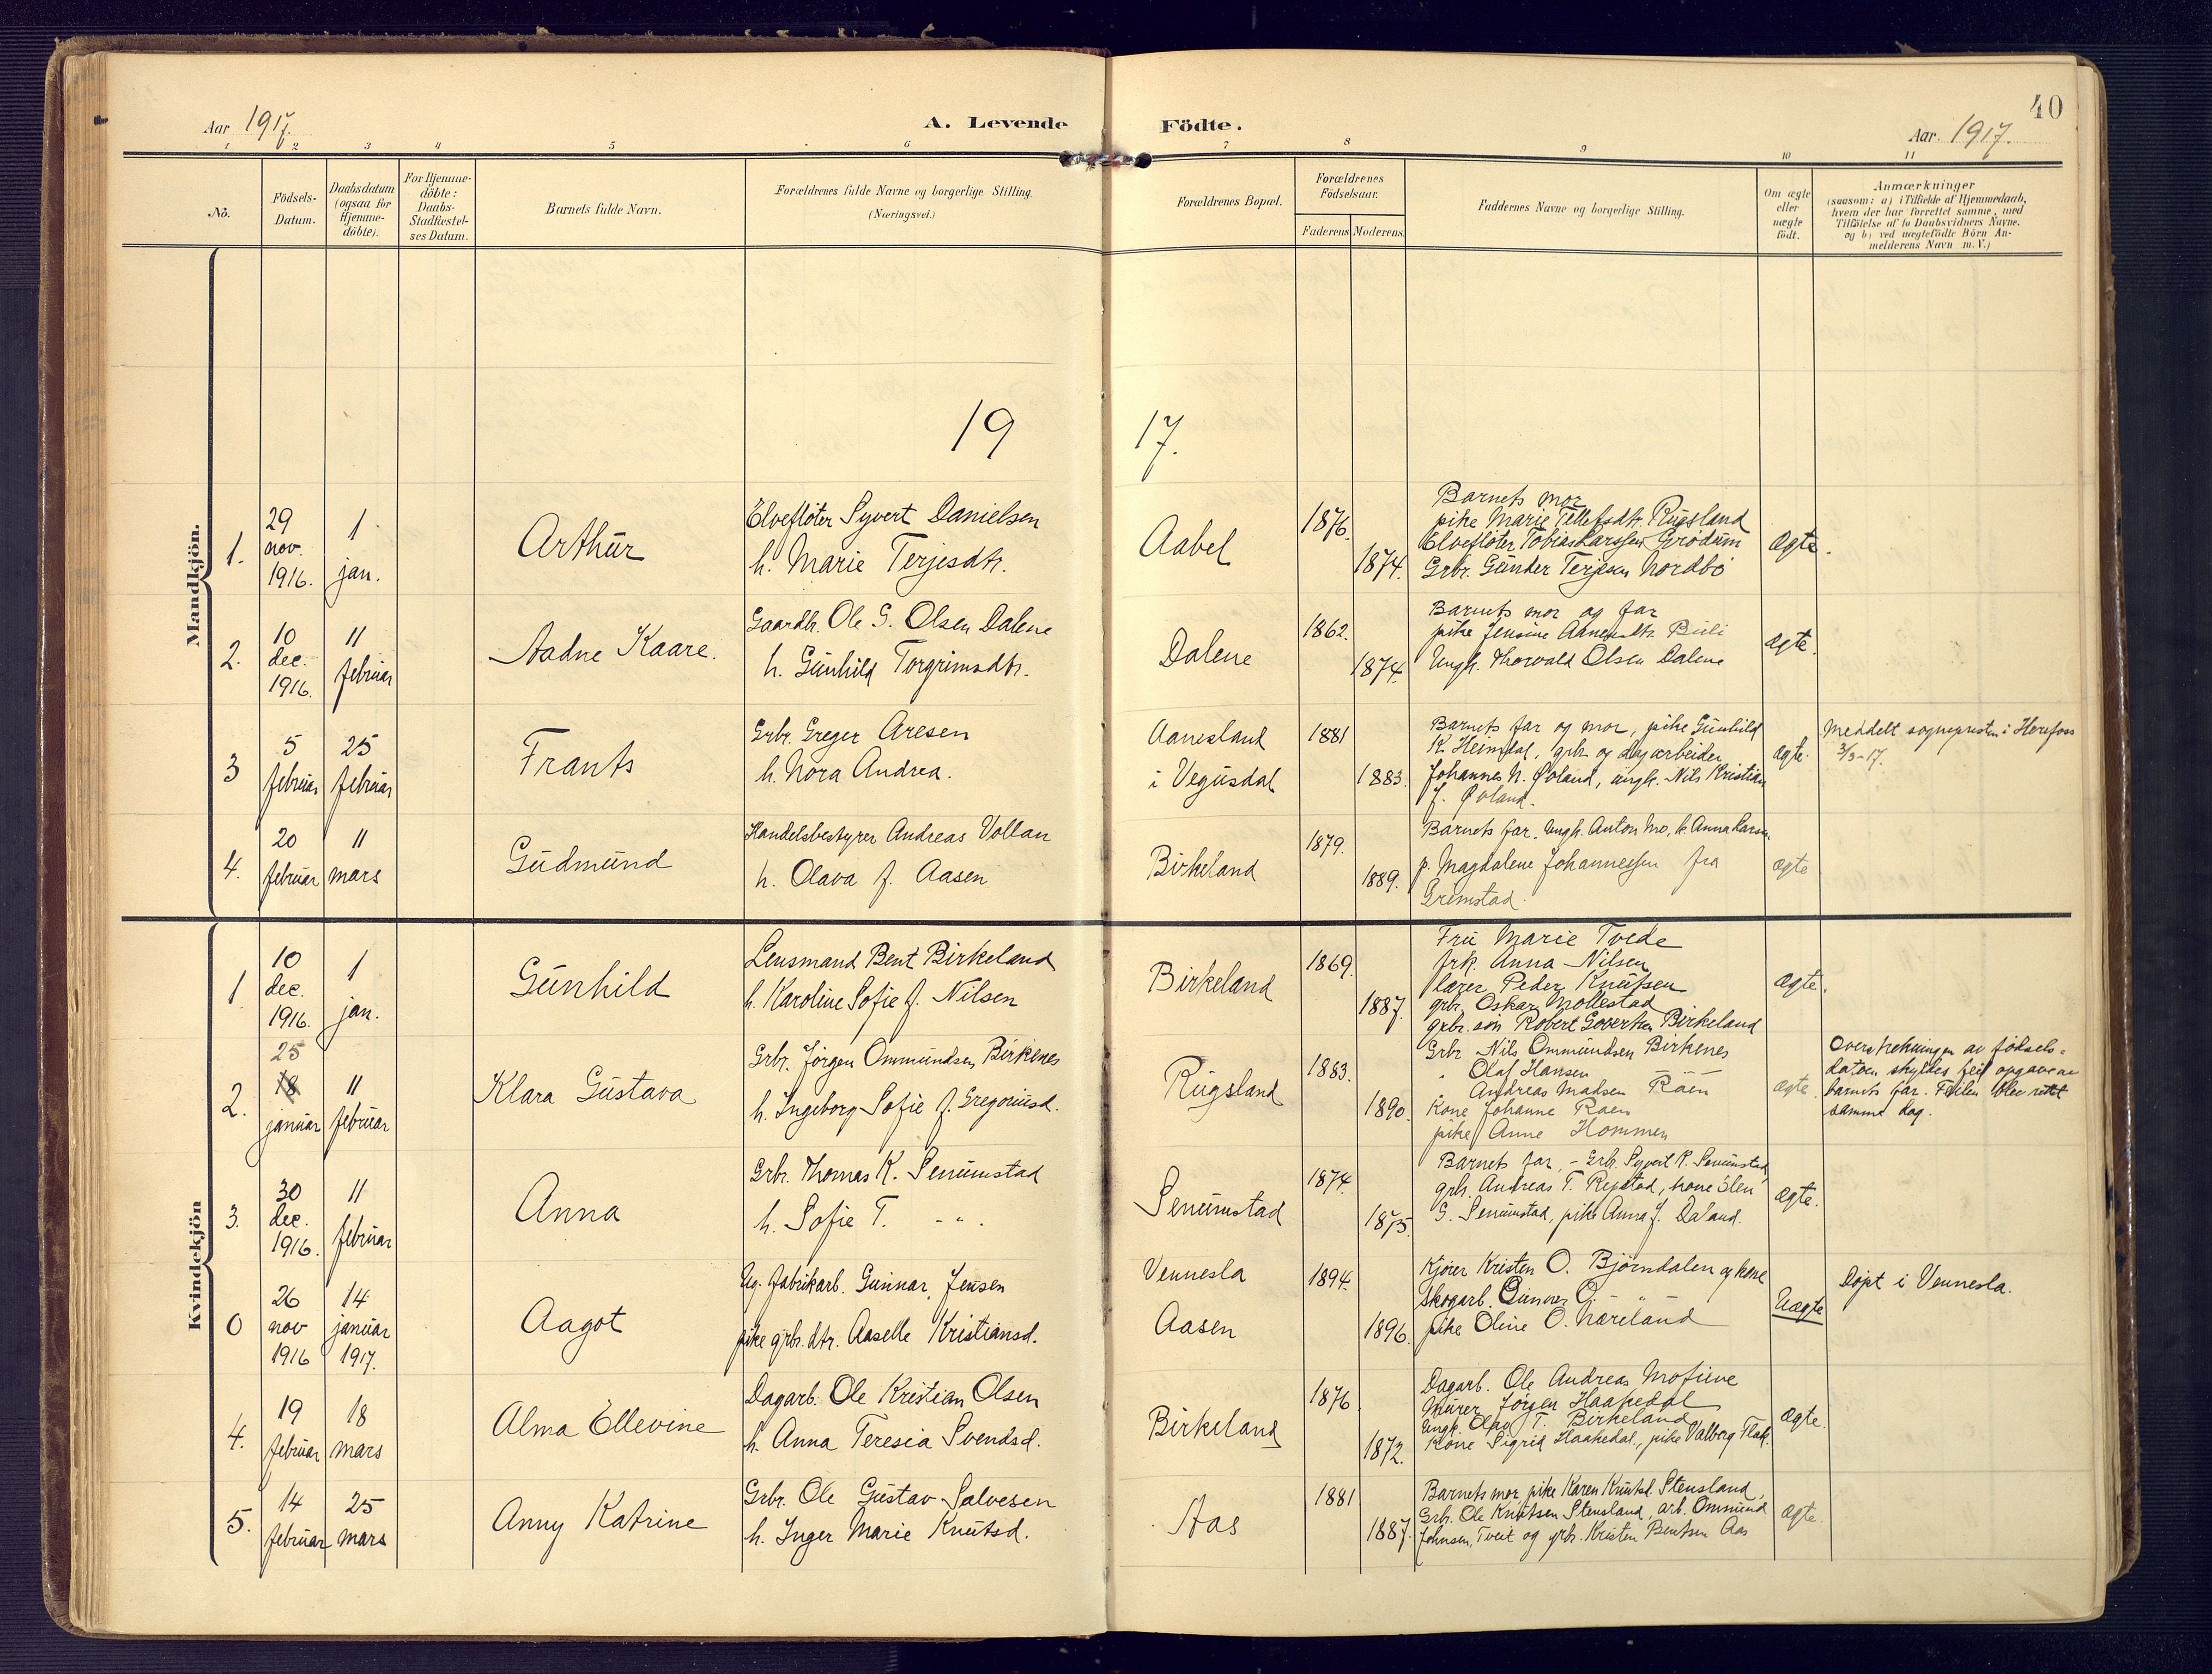 40
Aar 1917.
A. Levende
Födte.
Aar. 1917.
1 2 3 4 5 6 7 8 9 10 11
No.
Födsels-
Datum.
Daabsdatum
(ogsaa for
Hjemme-
döbte).
For Hjemme-
döbte:
Daabs-
Stadfæstel-
ses Datum.
Barnets fulde Navn.
Forældrenes fulde Navne og borgerlige Stilling.
(Næringsvei.)
Forældrenes Bopæl.
Forældrenes
Födselsaar.
Faderens Moderens.
Faddernes Navne og borgerlige Stilling.
Om ægte
eller
uægte
født.
Anmærkninger
(saasom: a) i Tilfælde af Hjemmedaab,
hvem der har forrettet samme, med
Tilføielse af to Daabsvidners Navne.
og b) ved uægtefödte Börn An-
melderens Navn m. V.)
19
17.
Mandkjön.
1.
29
nov.
1916.
1
jan.
Arthur
Elvefløter Syvert Danielsen
h. Marie Terjesdtr.
Aabel
1876.
1874.
Barnets mor
pike Marie Tellefsdtr. Rugsland
Elvefløter Tobias Larssen Grødum
Grbr. Gunder Terjesen Nordbø
ægte.
2.
10
dec.
1916.
11
februar
Aadne Kaare.
Gaardbr. Ole G. Olsen Dalene
h. Gunhild Torgrimsdtr.
Dalene
1862.
1874.
Barnets mor og far
pike Jensine Aanensdtr.
Ungk. Thorvald Olsen Dalene
ægte.
3
5
februar
25
februar
Frants
Grbr. Greger Aresen
h. Nora Andrea.
Aanesland
i Vegusdal
1881
1883.
Barnets far og mor, pike Gunhild
K. Heimdal, grbr. og dagarbeider
Johannes N. Øvland, ungk. Nils Kristian
J. Øvland.
ægte.
Meddelt sognepresten i Herefoss
3/3-17.
4.
20
februar
11
mars
Gudmund
Handelsbestyrer Andreas Vollan
h. Olava f. Aasen
Birkeland
1879.
1889.
Barnets far, ungk. Anton Mo, k. Anna Larsen
p. Magdalene Johannessen fra
Grimstad.
ægte
Kvindekjön
1
10
dec.
1916.
1
jan.
Gunhild
Lensmand Bent Birkeland
h. Karoline Sofie f. Nilsen
Birkeland
1869.
1887.
Fru Marie Tvede
frk. Anna Nilsen
lærer Peder Knutsen
grbr. Oskar Mollestad
grbr. søn Robert Govertsen Birkeland
ægte.
2.
25
18
januar
11
februar
Klara Gustava
Grbr. Jørgen Ommundsen Birkenes
h. Ingeborg Sofie f. Gregoriusd.
Rugsland
1883.
1890.
Grbr Nils Ommundsen Birkenes
" Olaf Hansen
Andreas Madsen Raen
Kone Johanne Raen
pike Anne Hommen
ægte.
Overstrekningen av fødsels-
datoen skyldes feil opgave av
barnets far. Feilen blev rettet
samme dag.
3.
30
dec.
1916.
11
februar
Anna
Grbr. Thomas K. Senumstad
h. Sofie T. - " -
Senumstad
1874.
1875.
Barnets far, - Grb. Syvert K. Senumstad
grb. Andreas T. Rejstad, kone Elen
G. Senumstad, pike Anna J. Daland.
ægte.
0
26
nov
1916
14
januar
1917.
Aagot
Ug. fabrikarb. Gunnar Jensen
pike grbr. dtr. Aaselle Kristiansd.
Vennesla
Aasen
1894.
1896.
Kjører Kristen O. Bjørndalen og kone
Skogarb. Gunnar O. - " -
pike Oline O. Næreland
Uægte
Døpt i Vennesla.
4.
19
februar
18
mars
Alma Ellevine
Dagarb. Ole Kristian Olsen
h. Anna Teresia Svendsd.
Birkeland
1876
1872.
Dagarb. Ole Andreas
Murer Jørgen Haakedal
Ungk. Olav T. Birkeland
Kone Sigrid Haakedal, pike Valborg Flak.
ægte.
5.
14
februar
25
mars
Anny Katrine
Grbr. Ole Gustav Salvesen
h. Inger Marie Knutsd.
Aas
1881
1887.
Barnets mor pike Karen Knutsd. Stensland,
Grb. Ole Knutsen Stensland, arb. Ommund
Johnsen, Tveit og grb. Kristen Bentsen Aas
ægte.